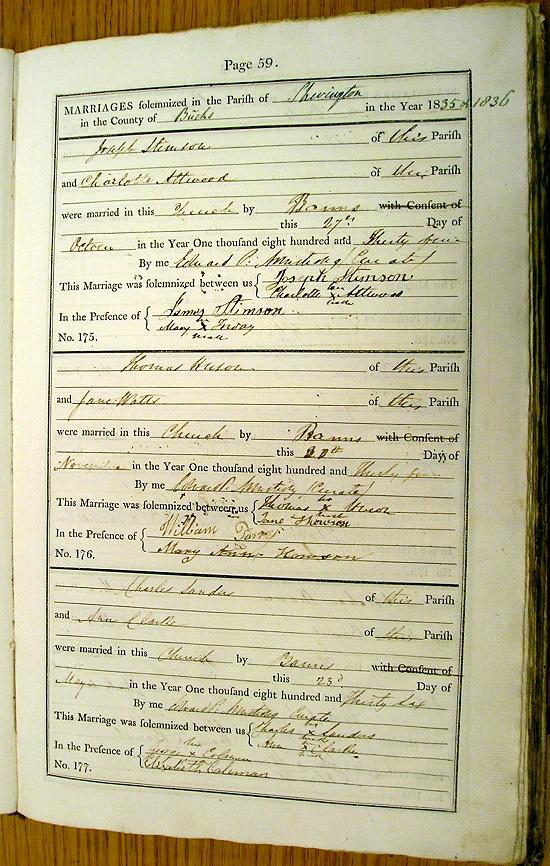 Page 59.
MARRIAGES solemnized in the Parish of Shevington
in the County of Bucks in the Year 1835 & 1836
Joseph Stimson of this Parish
and Charlotte Attwood of this Parish
were married in this Church by Banns with Consent of
this 27th Day of
in the Year One thousand eight hundred and Thirty five
By me Edward P. Curate
This Marriage was solemnized between us Joseph Stimson
Charlotte her x Attwood
mark
In the Presence of James Stimson
Mary x
mark
No. 175.
Thomas of this Parish
and Jane Watts of this Parish
were married in this Church by Banns with Consent of
this Day of
November in the Year One thousand eight hundred and Thirty five
By me Edward P. (Curate)
This Marriage was solemnized between us Thomas x
Jane
In the Presence of William
Mary Ann
No. 176.
Charles Sanders of this Parish
and Ann Clarke of this Parish
were married in this Church by Banns with Consent of
this 23d Day of
May in the Year One thousand eight hundred and Thirty Six
By me Edward P. Curate
This Marriage was solemnized between us Charles x Sanders
Ann x Clarke
In the Presence of George x Coleman
Elizabeth Coleman
No. 177.